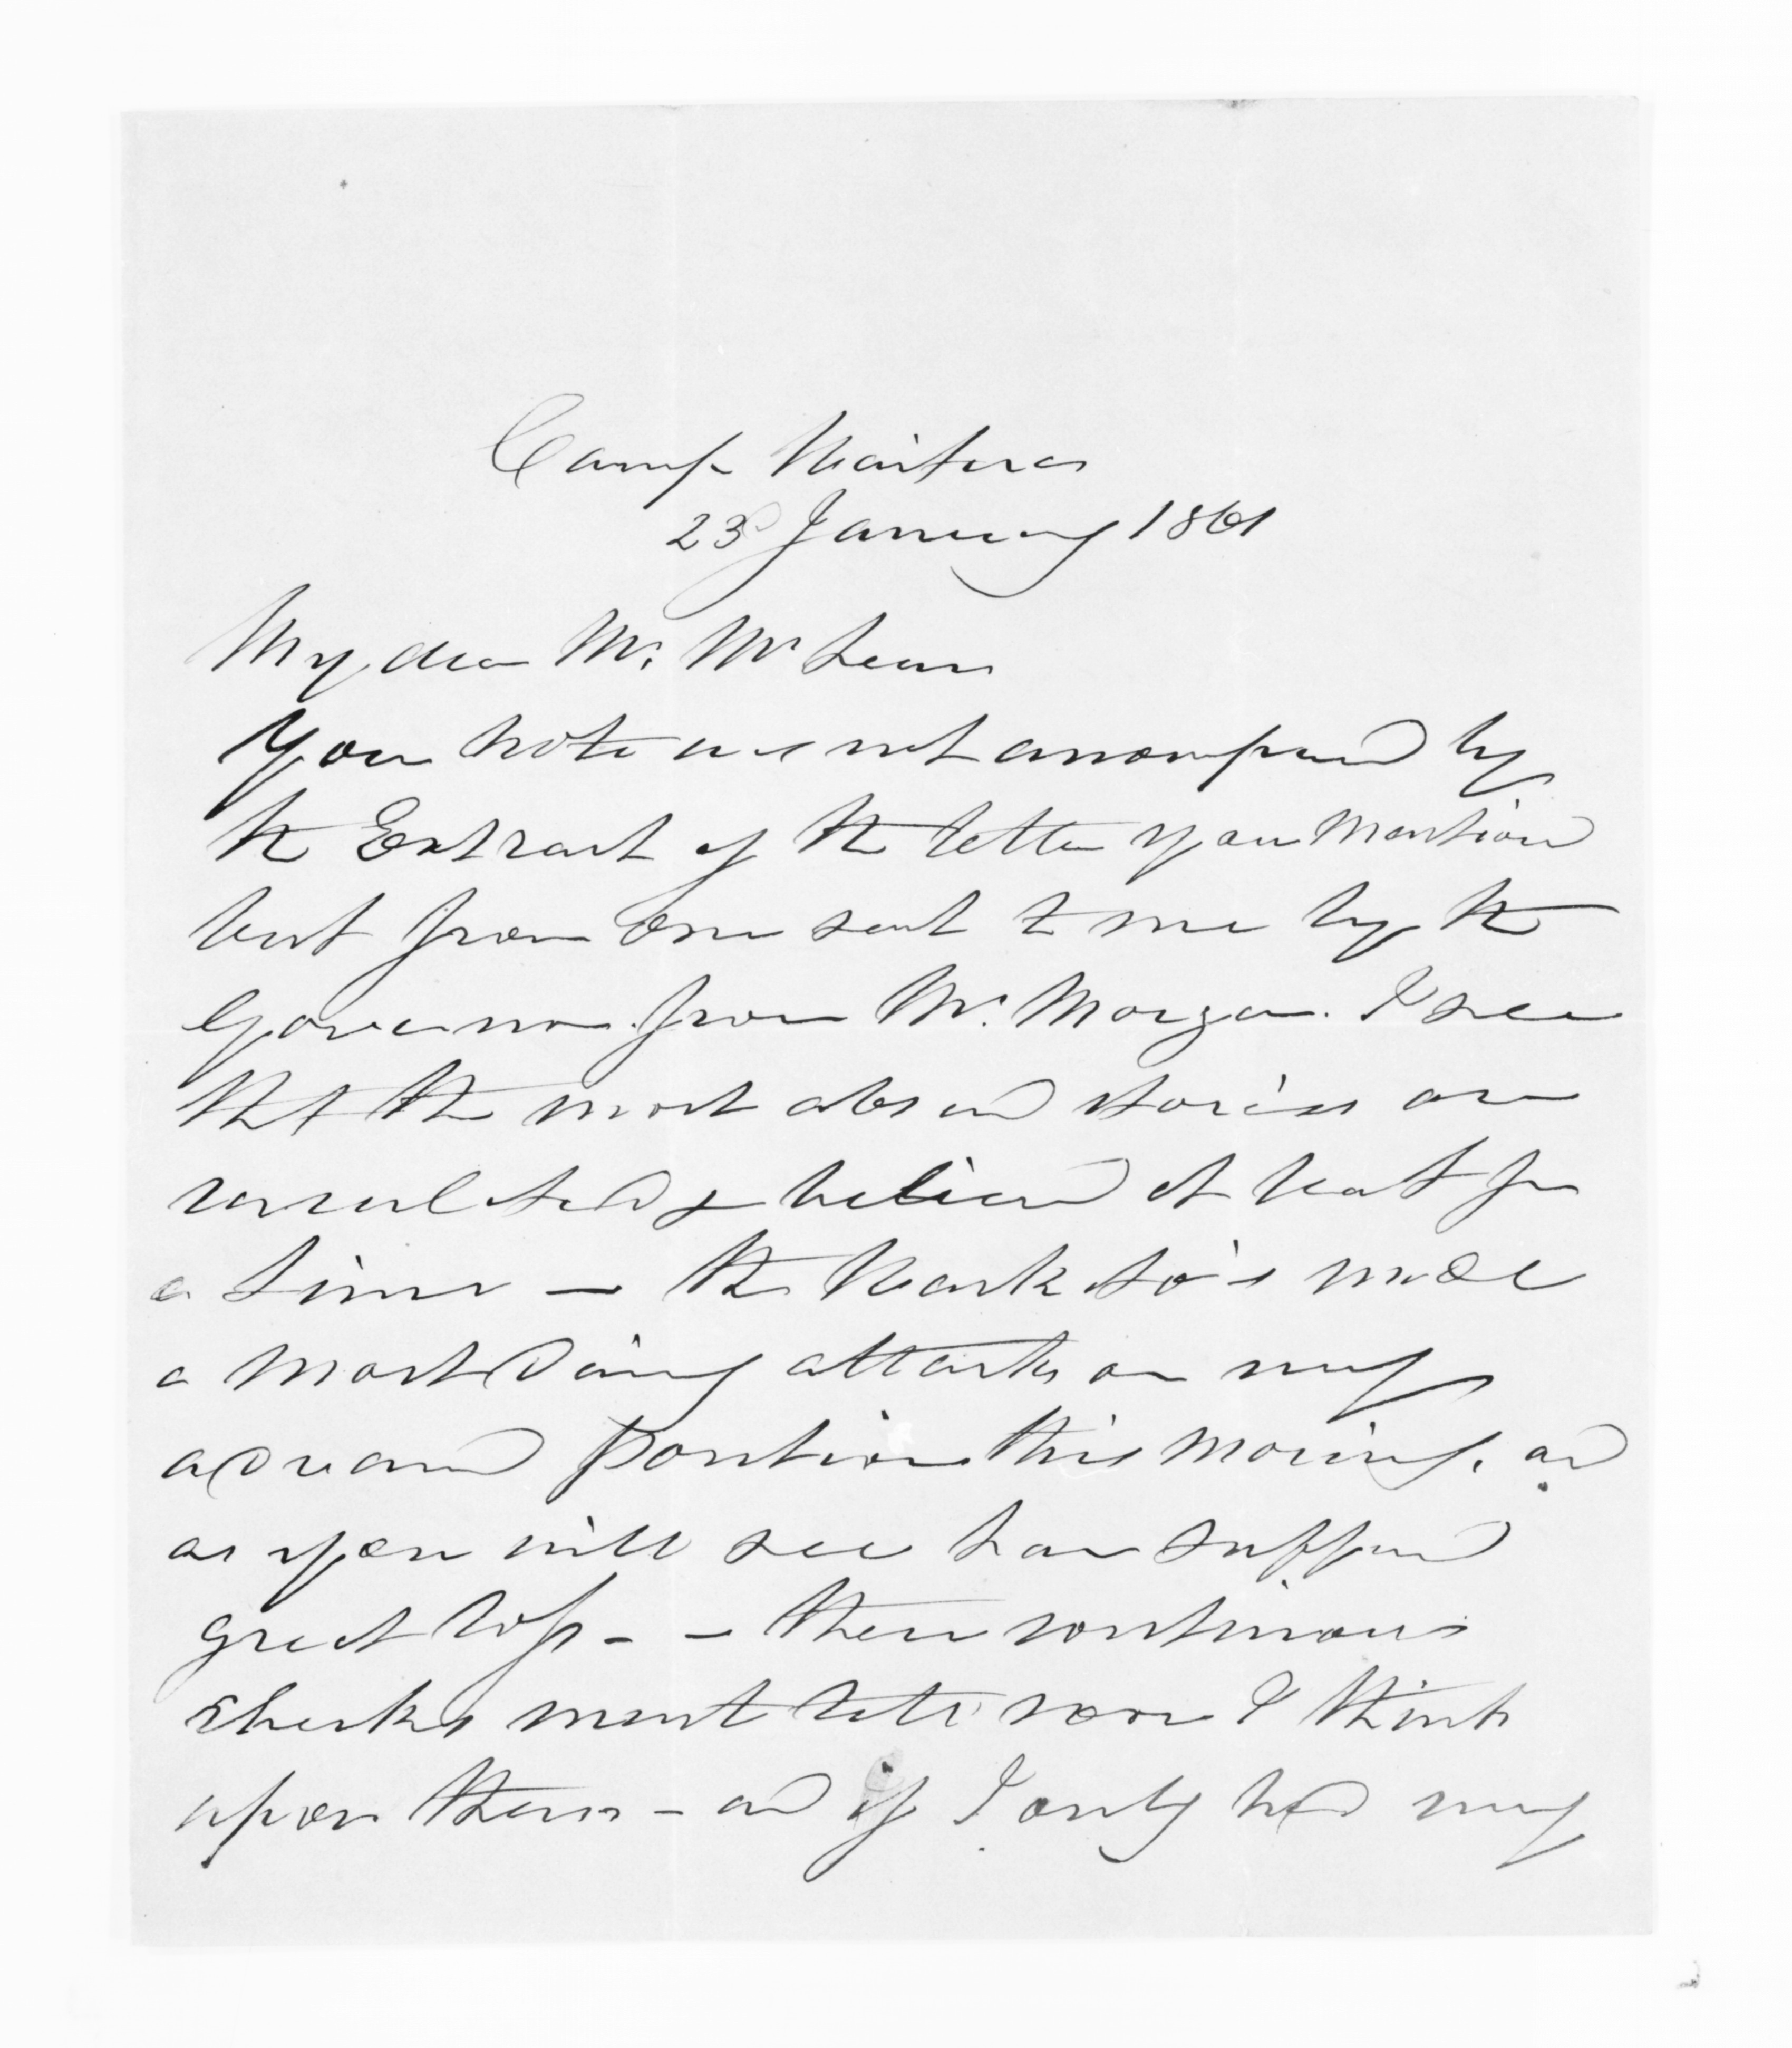 Camp Waitara
23 January 1861
My dear Mr. McLean
Your note was not accompanied by
the Extract of the letter you mention
but from one sent to me by the
Governor from Mr. Morgan. I see
that the most absurd stories are
circulated & believed at least for
a time — the Waikato's made
a most daring attack on my
advanced position this morning. and
as you will see have suffered
great loss - - these continuous
checks must tell soon I think
upon them - and if I only had my